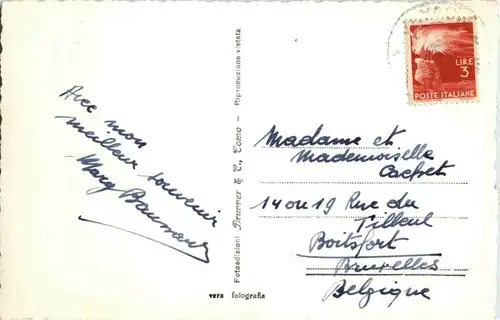 Avec mon
meilleur souvenir
Marg
Fotoedizioni Brunner & C., Como - Riproduzione vietata
vera fotografia
LIRE
3
POSTE ITALIANE
Madame et
Mademoiselle
Cachet
14 ou 19 Rue du
Tilleul
Boitsfort
Bruxelles
Belgique